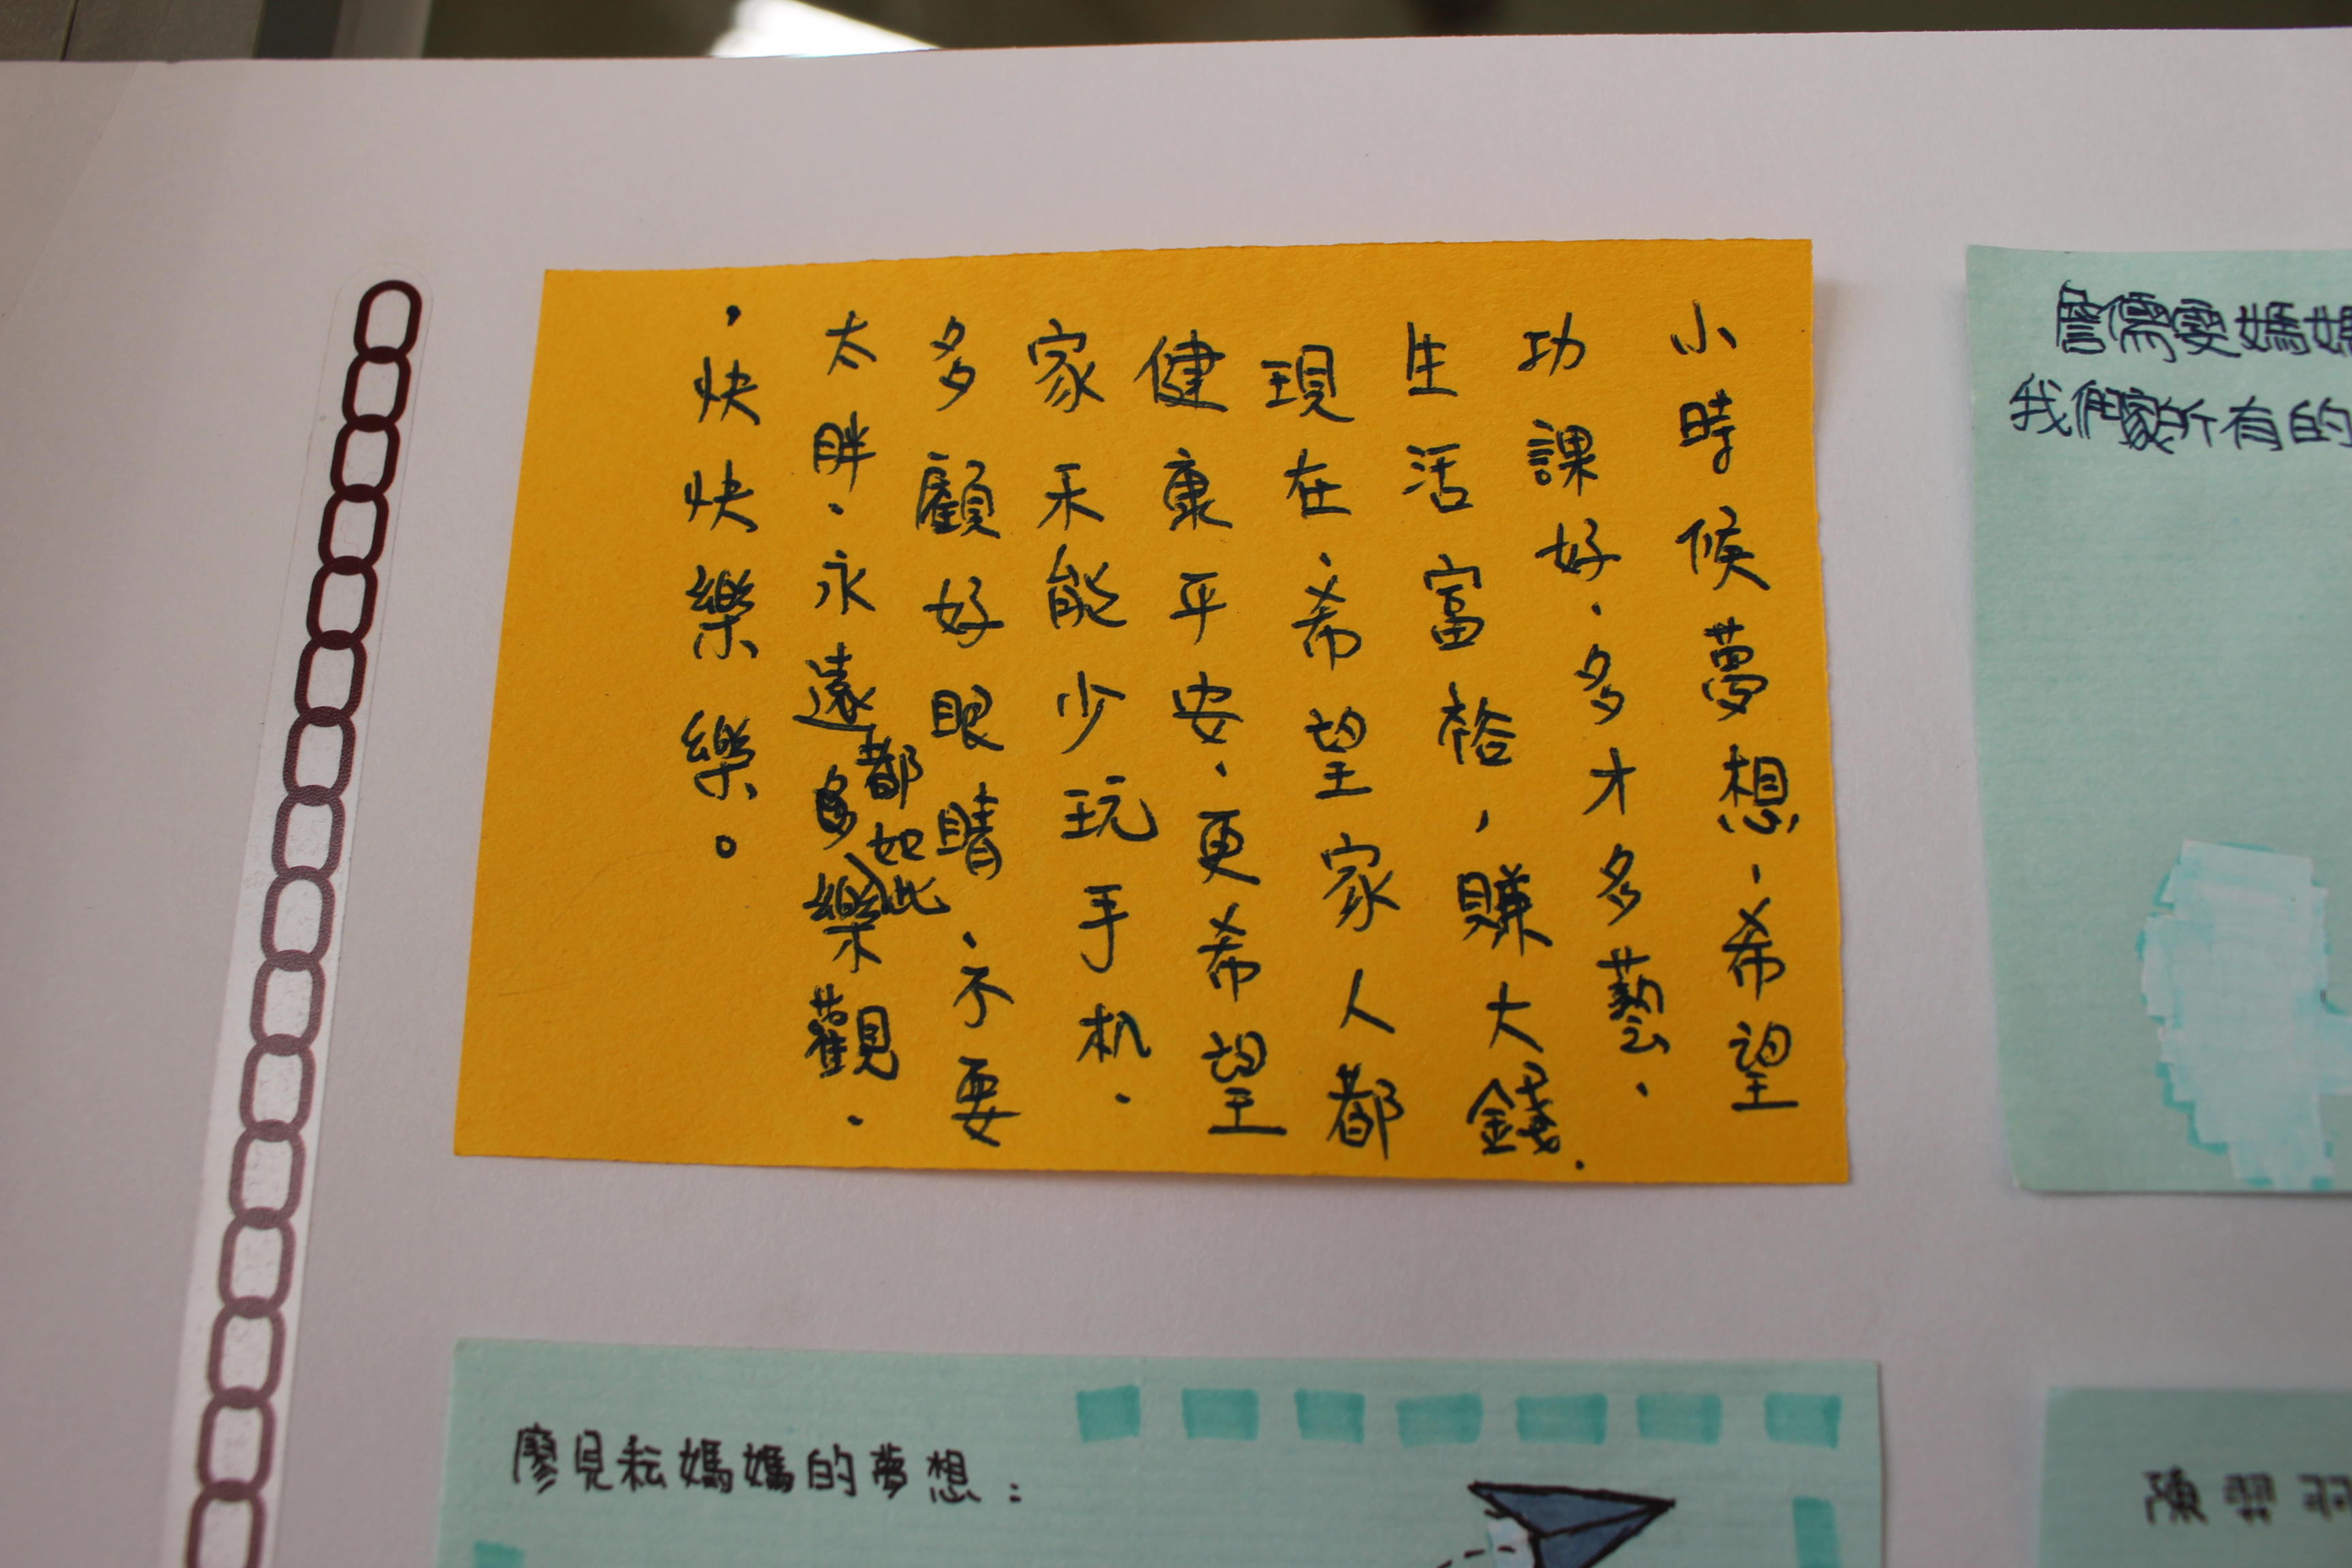 小時候夢想、希望
功課好、多才多藝、
生活富裕，賺大錢.
現在、希望家人都
健康平安、更希望
家禾能少玩手机、
多顧好眼睛、不要
太胖、永遠都如此樂觀、
，快快樂樂。
我們家所有的
廖見耘媽媽的夢想：
陳羿